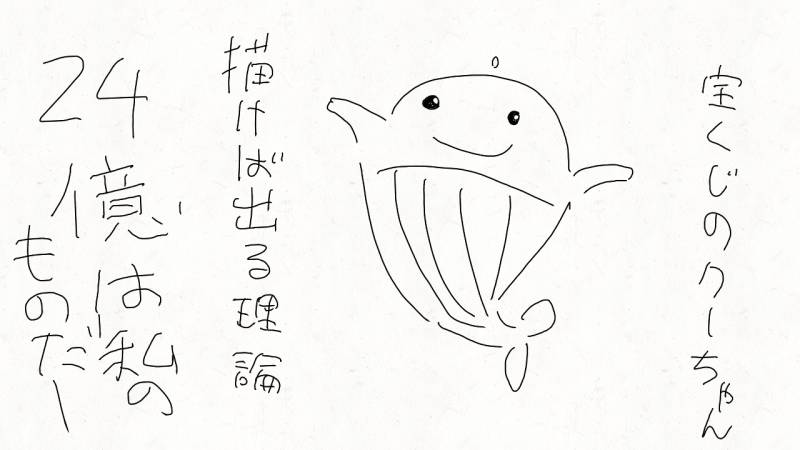 宝くじのクーちゃん
描けば出る理論
24
億は私の
ものだー